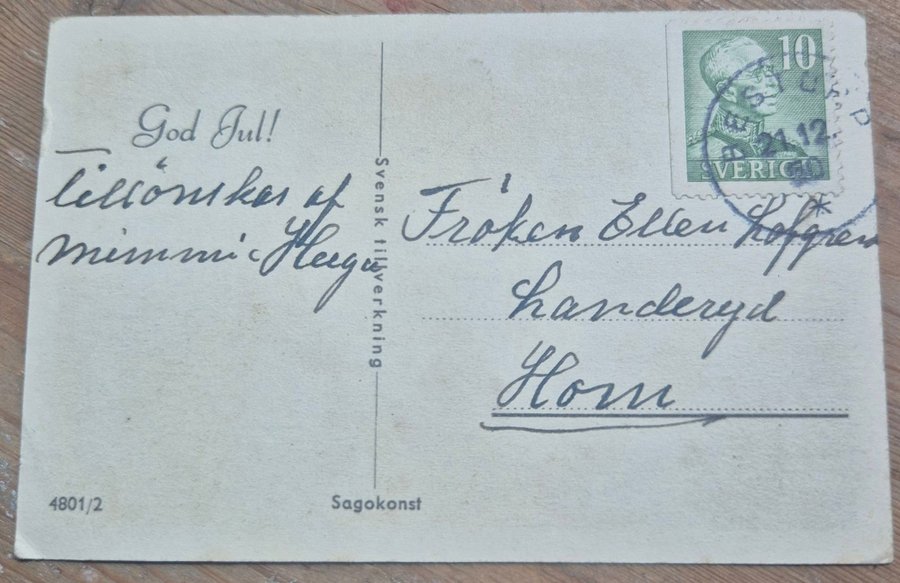 God Jul!
Tillönskas af
Mimmi Hugo
Svensk tillverkning
4801/2
Sagokonst
10
SVERIGE
21.12
Fröken Ellen Löfgren
Landeryd
Horn